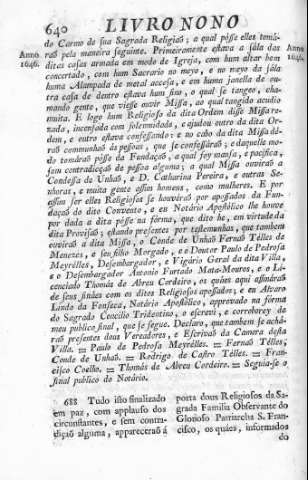 640 LIVRO NONO
do Carmo de sua Sagrada Religiaõ; a qual pósse elles tomá-
raõ pela maneira seguinte. Primeiramente estava a sála das
Anno 1646.
Anno 1646.
ditas casas armada em modo de Igreja, com hum altar bem
concertado, com hum Sacrario no meyo, e no meyo da sála
huma Alampada de metal accesa, e em huma janella de ou-
tra casa de dentro estava hum sino, o qual se tangeo, cha-
mando gente, que viesse ouvir Missa, ao qual tangido acudio
muita. E logo hum Religioso da dita Ordem disse Missa or-
nada, incensada com solemnidade, e ajudou outro da dita Or-
dem, e outro estava confessando: e no cabo da dita Missa dé-
raõ communhaõ ás pessoas, que se confessáraõ; e daquelle mo-
do tomáraõ pósse da Fundaçaõ, a qual foy mansa, e pacifica,
sem contradicçaõ de pessoa alguma; a qual Missa ouviraõ a
Condessa de Unhaõ, e D. Catharina Pereira, e outras Se-
nhoras, e muita gente assim homens, como mulheres. E por
assim ser elles Religiosos se houveraõ por apossados da Fun-
daçaõ do dito Convento, e eu Notário Apostólico lhe houve
por dada a dita pósse na fórma, que dito he, em virtude da
dita Provisaõ; estando presentes por testemunhas, que tambem
ouviraõ a dita Missa, o Conde de Unhaõ Fernaõ Télles de
Menezes, e seu filho Morgado, e o Doutor Paulo de Pedrosa
Meyrélles, Desembargador, e Vigário Geral da dita Villa,
e o Desembargador Antonio Furtado Mata-Mouros, e o Li-
cenciado Thomás de Abreu Cordeiro, os quáes aqui assináraõ
de seus sináes com os ditos Religiosos apossados; e eu Alvaro
Lindo da Fonseca, Notário Apostólico, approvado na fórma
do Sagrado Concilio Tridentino, o escrevi, e corroborey de
meu publico final, que se segue. Declaro, que tambem se achá-
raõ presentes dous Vereadores, e Escrivaõ da Camara désta
Villa. = Paulo de Pedrosa Meyrélles. = Fernaõ Télles,
Conde de Unhaõ. = Rodrigo de Castro Télles. = Fran-
cisco Coelho. = Thomás de Abreu Cordeiro. = Seguia-se o
final publico do Notário.
688 Tudo isto finalizado
em paz, com applauso dos
circunstantes, e sem contra-
diçaõ alguma, apparecerað á
porta dous Religiosos da Sa-
grada Familia Observante do
Glorioso Patriarcha S. Fran-
cisco, os quáes, informados
do